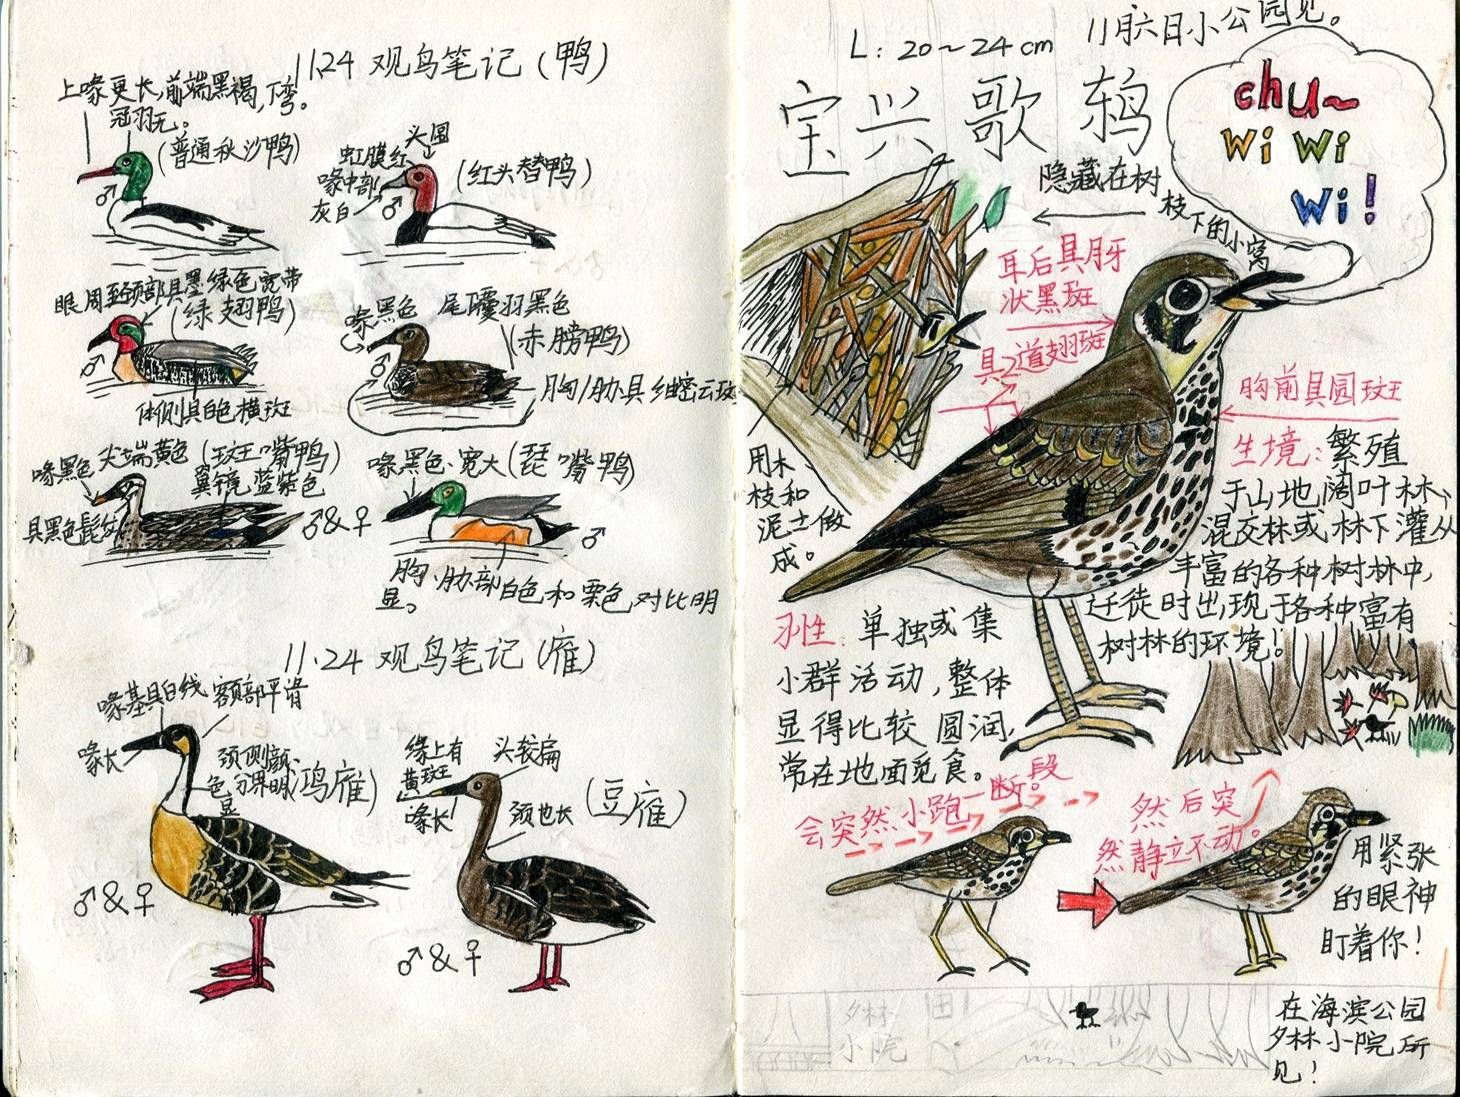 11.24 观鸟笔记(鸭)
上喙更长,前端黑褐,下弯。
冠羽无。
(普通秋沙鸭)
♂
头圆
虹膜红
喙中部
灰白
♂
(红头替鸭)
眼周至颈部具墨绿色宽带
(绿翅鸭)
♂
体侧具白色横斑
喙黑色
尾覆羽黑色
(赤膀鸭)
♂
胸/肋具细密云斑
喙黑色 尖端黄色
(斑嘴鸭)
翼镜蓝紫色
具黑色髭纹
♂&♀
喙黑色、宽大(琵嘴鸭)
♂
胸、肋部白色和栗色对比明
显。
11.24 观鸟笔记(雁)
喙基具白线
额部平滑
喙长
颈侧颜
色分界明
显
(鸿雁)
♂&♀
喙上有
黄斑
喙长
头较扁
颈也长
(豆雁)
♂&♀
11月六日小公园见。
L: 20~24 cm
宝兴歌鸫
chu~
wi wi
wi!
隐藏在树
枝下的小窝
耳后具月牙
状黑斑
具2道翅斑
胸前具圆斑
用木
枝和
泥土做
成。
生境:繁殖
于山地阔叶林、
混交林或林下灌丛
丰富的各种树林中,
迁徒时出现于各种富有
树林的环境!
习性:单独或集
小群活动,整体
显得比较圆润,
常在地面觅食。
会突然小跑一断段
然后突
然静立不动。
用紧张
的眼神
盯着你!
在海滨公园
夕林小院所
见!
夕林
小院